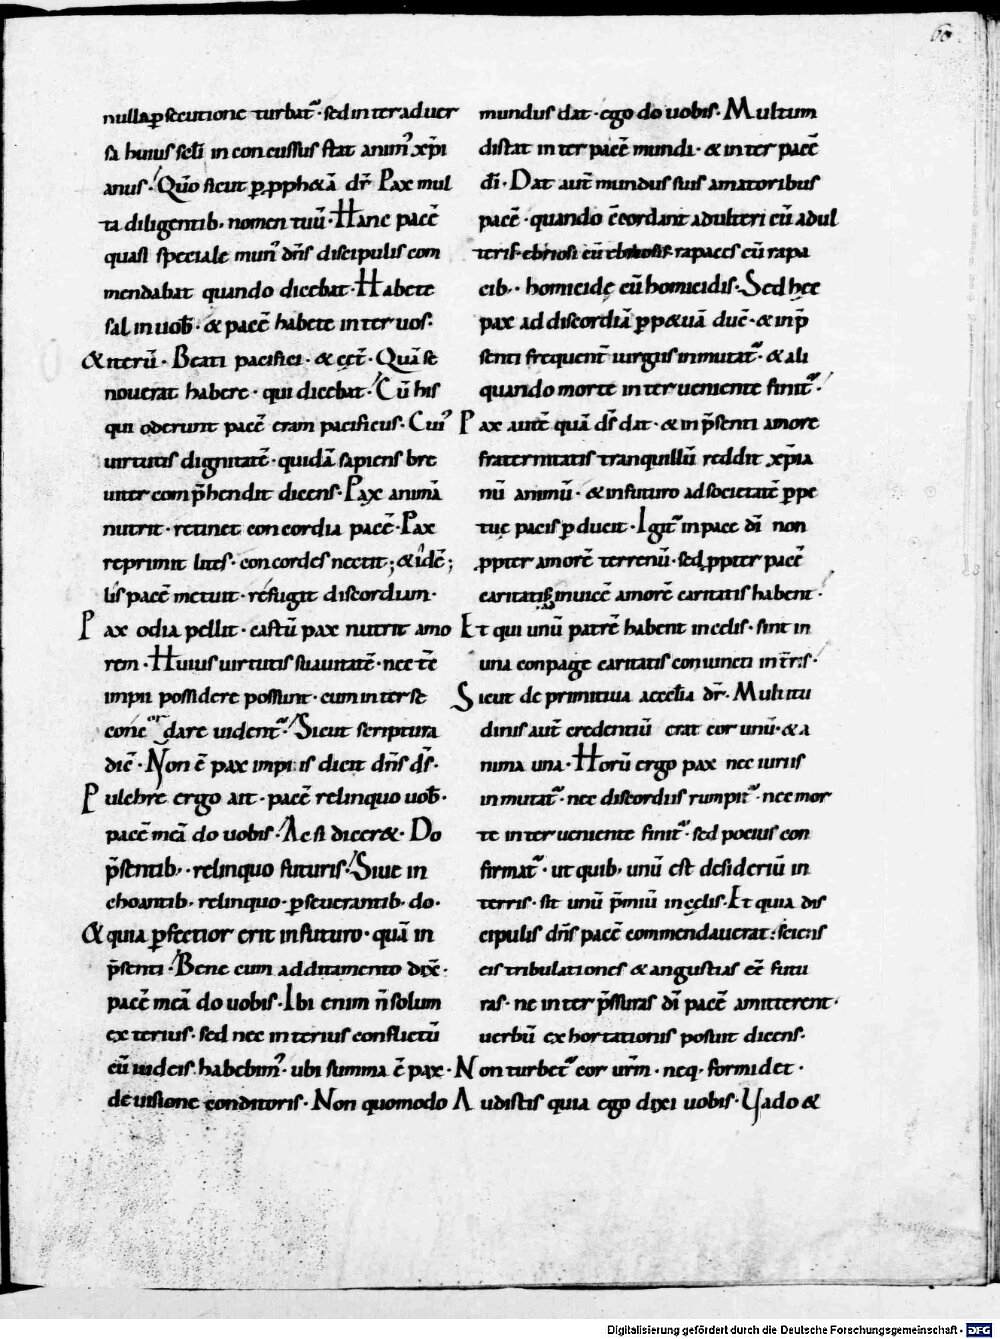 60
nulla ꝑsecutione turbat᷑· sed inter aduer
sa huius sc̄li in concussus stat anim᷒ xp̄i
anus· Qm̄o sicut ꝑ ꝓph&ā dr̄ Pax mul
ta diligentib· nomen tuū· Hanc pacē
quasi speciale mun᷒ dn̄s discipulis com
mendabat quando dicebat· Habete
sal in uob̄· & pacē habete inter uos·
& iterū· Beati pacifici· & cęt̄· Quā se
nouerat habere· qui dicebat· Cū his
qui oderunt pacē eram pacificus· Cui᷒
uirtutis dignitatē· quidā sapiens bre
uiter comp̄hendit dicens· Pax animā
nutrit· retinet concordia pacē· Pax
reprimit lites· concordes nectit; & idē;
lis pacē metuit· refugit discordium·
Pax odia pellit· castū pax nutrit amo
rem· Huius uirtutis suauitatē· nec tē
impii possidere possunt· cum inter se
conc or dare uident᷑· Sicut scriptura
dic̄· Non ē pax impiis dicit dn̄s ds̄·
Pulchre ergo ait· pacē relinquo uob̄·
pacē meā do uobis· Ac si dicer&· Do
p̄sentib·· relinquo futuris· Siue in
choantib· relinquo· ꝑseuerantib· do·
& quia ꝑfectior erit in futuro· quā in
p̄senti· Bene cum additamento dix̄·
pacē meā do uobis· Ibi enim n̄ solum
exterius· sed nec interius conflictū
cū uiciis habebim᷒· ubi summa ē pax·
de uisione conditoris· Non quomodo
mundus dat· ego do uobis· Multum
distat inter pacē mundi· & inter pacē
dī· Dat aut̄ mundus suis amatoribus
pacē· quando cc̄ordant adulteri cū adul
teris· ebriosi cū ebriosis· rapaces cū rapa
cib·· homicidę cū homicidis· Sed hęc
pax ad discordiā ꝑp&uā duc̄· & in p̄
senti frequent̄ iurgiis inmutat᷑· & ali
quando morte interueniente finit᷑·
Pax aut̄ quā ds̄ dat· & in p̄senti amore
fraternitatis tranquillū reddit xp̄ia
nū animū· & in futuro ad societatē ꝑpe
tuę pacis ꝑducit· Igit᷑ in pace dī non
ꝓpter amorē terrenū· sed ꝓpter pacē
caritatis inuicē amorē caritatis habent·
Et qui unū patrē habent in cęlis· sint in
una conpage caritatis coniuncti in tr̄is·
Sicut de primitiua acclesia dr̄· Multitu
dinis aut̄ credentiū erat cor unū· & a
nima una· Horū ergo pax nec iuriis
inmutat᷑· nec discordiis rumpit᷑· nec mor
te interueniente finit᷑· sed pocius con
firmat᷑· ut quib· unū est desideriū in
terris· sit unū p̄miū in cęlis· Et quia dis
cipulis dn̄s pacē commendauerat· sciens
eis tribulationes & angustias eē futu
ras· ne inter p̄ssuras dī pacē amitterent·
uerbū exhortationis posuit dicens·
Non turbet᷑ cor ur̄m· neq· formidet·
Audistis quia ego dixi uobis· Uado &
Digitalisierung gefördert durch die Deutsche Forschungsgemeinschaft - DFG